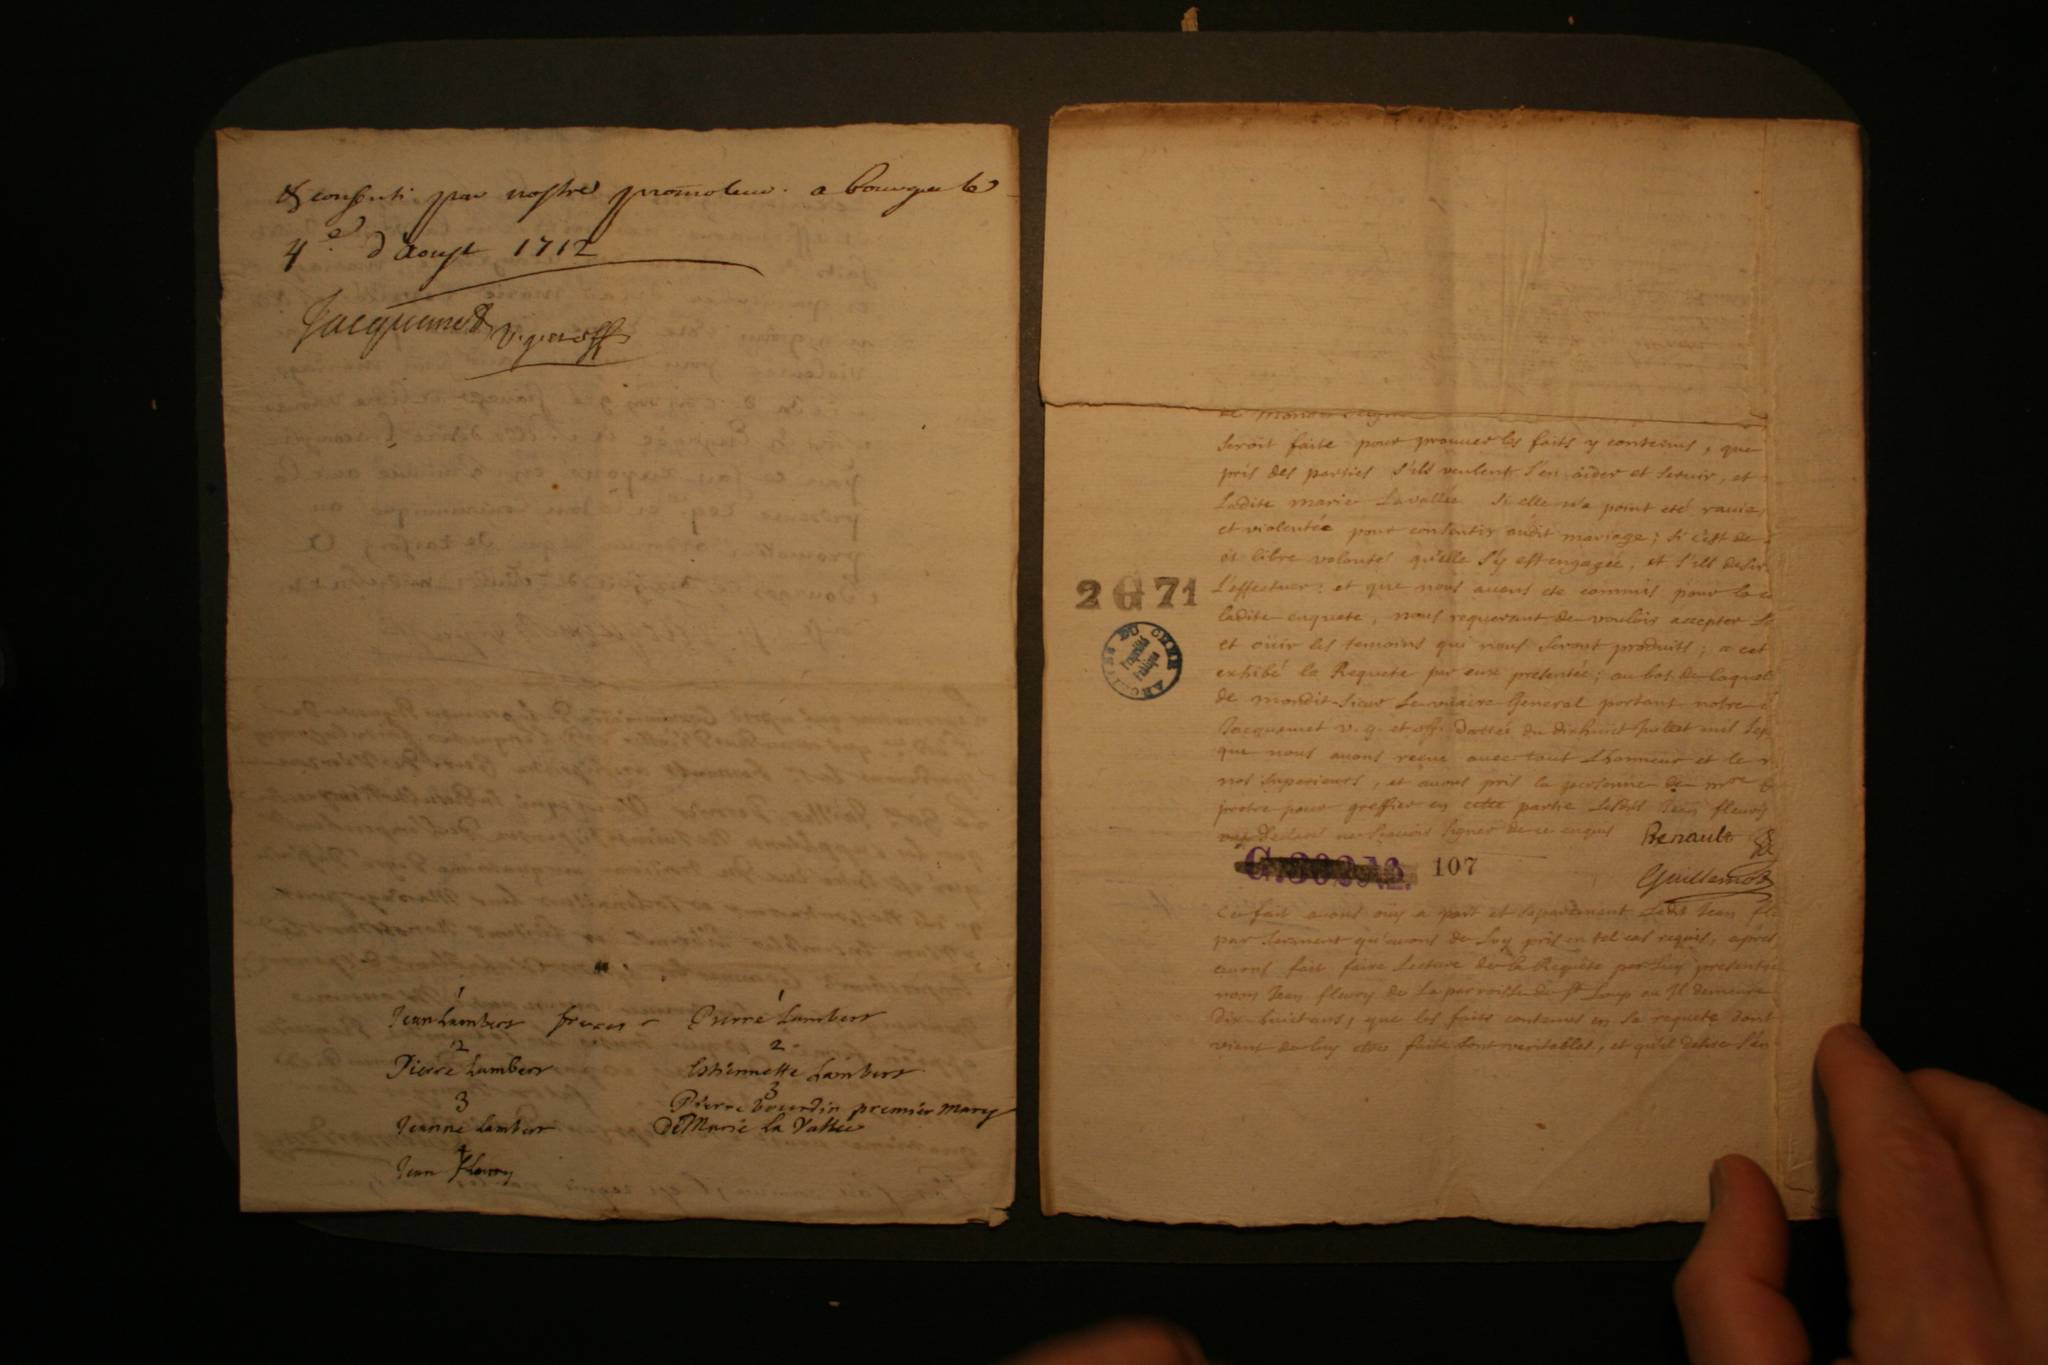 & consenti par nostre promoteur. a bourges le
4e d'Aoust 1712
Jacquemet v. g. et off
1 1
Jean Lambert freres - Pierre Lambert
2 2
Pierre Lambert Estiennette Lambert
3 3
Jeanne Lambert Pierre bourdin premier mary
De Marie La Vallée
4
Jean fleury
seroit faite pour prouver les faits y contenus, que
pris des parties s'ils veulent s'en aider et servir, et
Ladite marie Lavallée si elle n'a point eté ravie,
et violentée pour consentir audit mariage; si c'est de
et libre volonté qu'elle s'y est engagée, et s'ils desir
L'effectuer; et que nous avons eté commis pour la
ladite enquete, nous requerant de vouloir accepter
et oüir les temoins qui nous seront produits; a cet
exhibé la Requete par eux presentée; au bas de laquel
de mondit-Sieur Le vicaire General portant notre
Jacquemet v. g. et off. dattée du dixhuict Juillet mil sep
que nous avons reçue avec tout L'honneur et le r
nos superieurs, et avons pris la personne de mre
pretre pour greffier en cette partie Ledit Jean fleury
declaré ne sçavoir signer de ce enquis Renault
Guillemot
2 G 71
ARCHIVES DU CHER
Propriété Publique
G. 302 A2. 107
Ce fait avons oüy a part et separement Ledit Jean fle
par serment qu'avons de luy pris en tel cas requis, apres
avons fait faire Lecture de la Requête par luy presentée
nom Jean fleury de La parroisse de St Loup ou Il demeure
dix-huict ans, que les faits contenus en sa requete dont
vient de luy etre faite sont veritables, et qu'il desire s'en